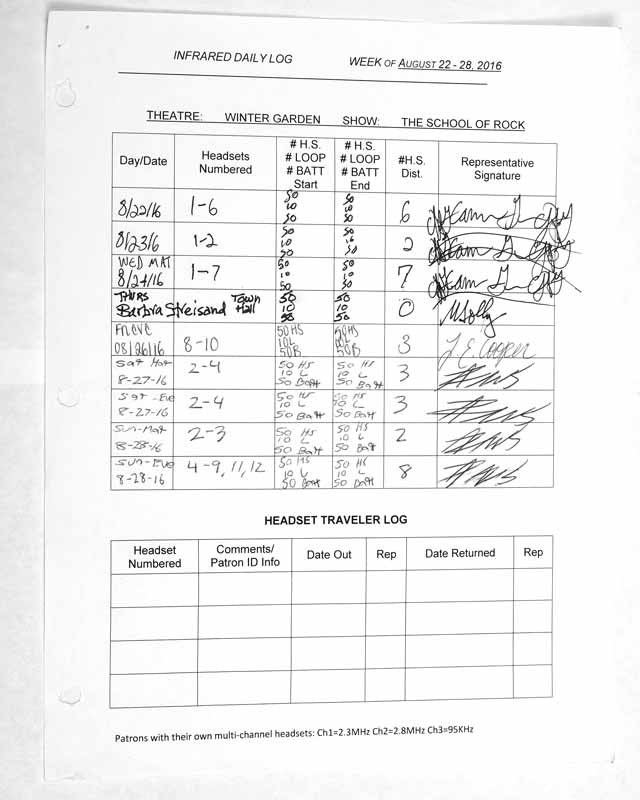 INFRARED DAILY LOG WEEK OF AUGUST 22 - 28, 2016
THEATRE: WINTER GARDEN SHOW: THE SCHOOL OF ROCK
Day/Date Headsets Numbered # H.S. # LOOP # BATT Start # H.S. # LOOP # BATT End #H.S. Dist. Representative Signature
8/22/16 1-6 50 10 50 50 10 50 6
8/23/16 1-2 50 10 50 50 10 50 2
WED MAT 8/24/16 1-7 50 10 50 50 10 50 7
THURS Barbra Streisand Town Hall 50 10 50 50 10 50 0
FRI EVE 08/26/16 8-10 50HS 10L 50B 50HS 10L 50B 3 J. E. Cooper
Sat Mat 8-27-16 2-4 50 HS 10 L 50 Batt 50 HS 10 L 50 Batt 3
Sat-Eve 8-27-16 2-4 50 HS 10 L 50 Batt 50 HS 10 L 50 Batt 3
Sun-Mat 8-28-16 2-3 50 HS 10 L 50 Batt 50 HS 10 L 50 Batt 2
Sun-Eve 8-28-16 4-9, 11, 12 50 HS 10 L 50 Batt 50 HS 10 L 50 Batt 8
HEADSET TRAVELER LOG
Headset Numbered Comments/ Patron ID Info Date Out Rep Date Returned Rep
Patrons with their own multi-channel headsets: Ch1=2.3MHz Ch2=2.8MHz Ch3=95KHz